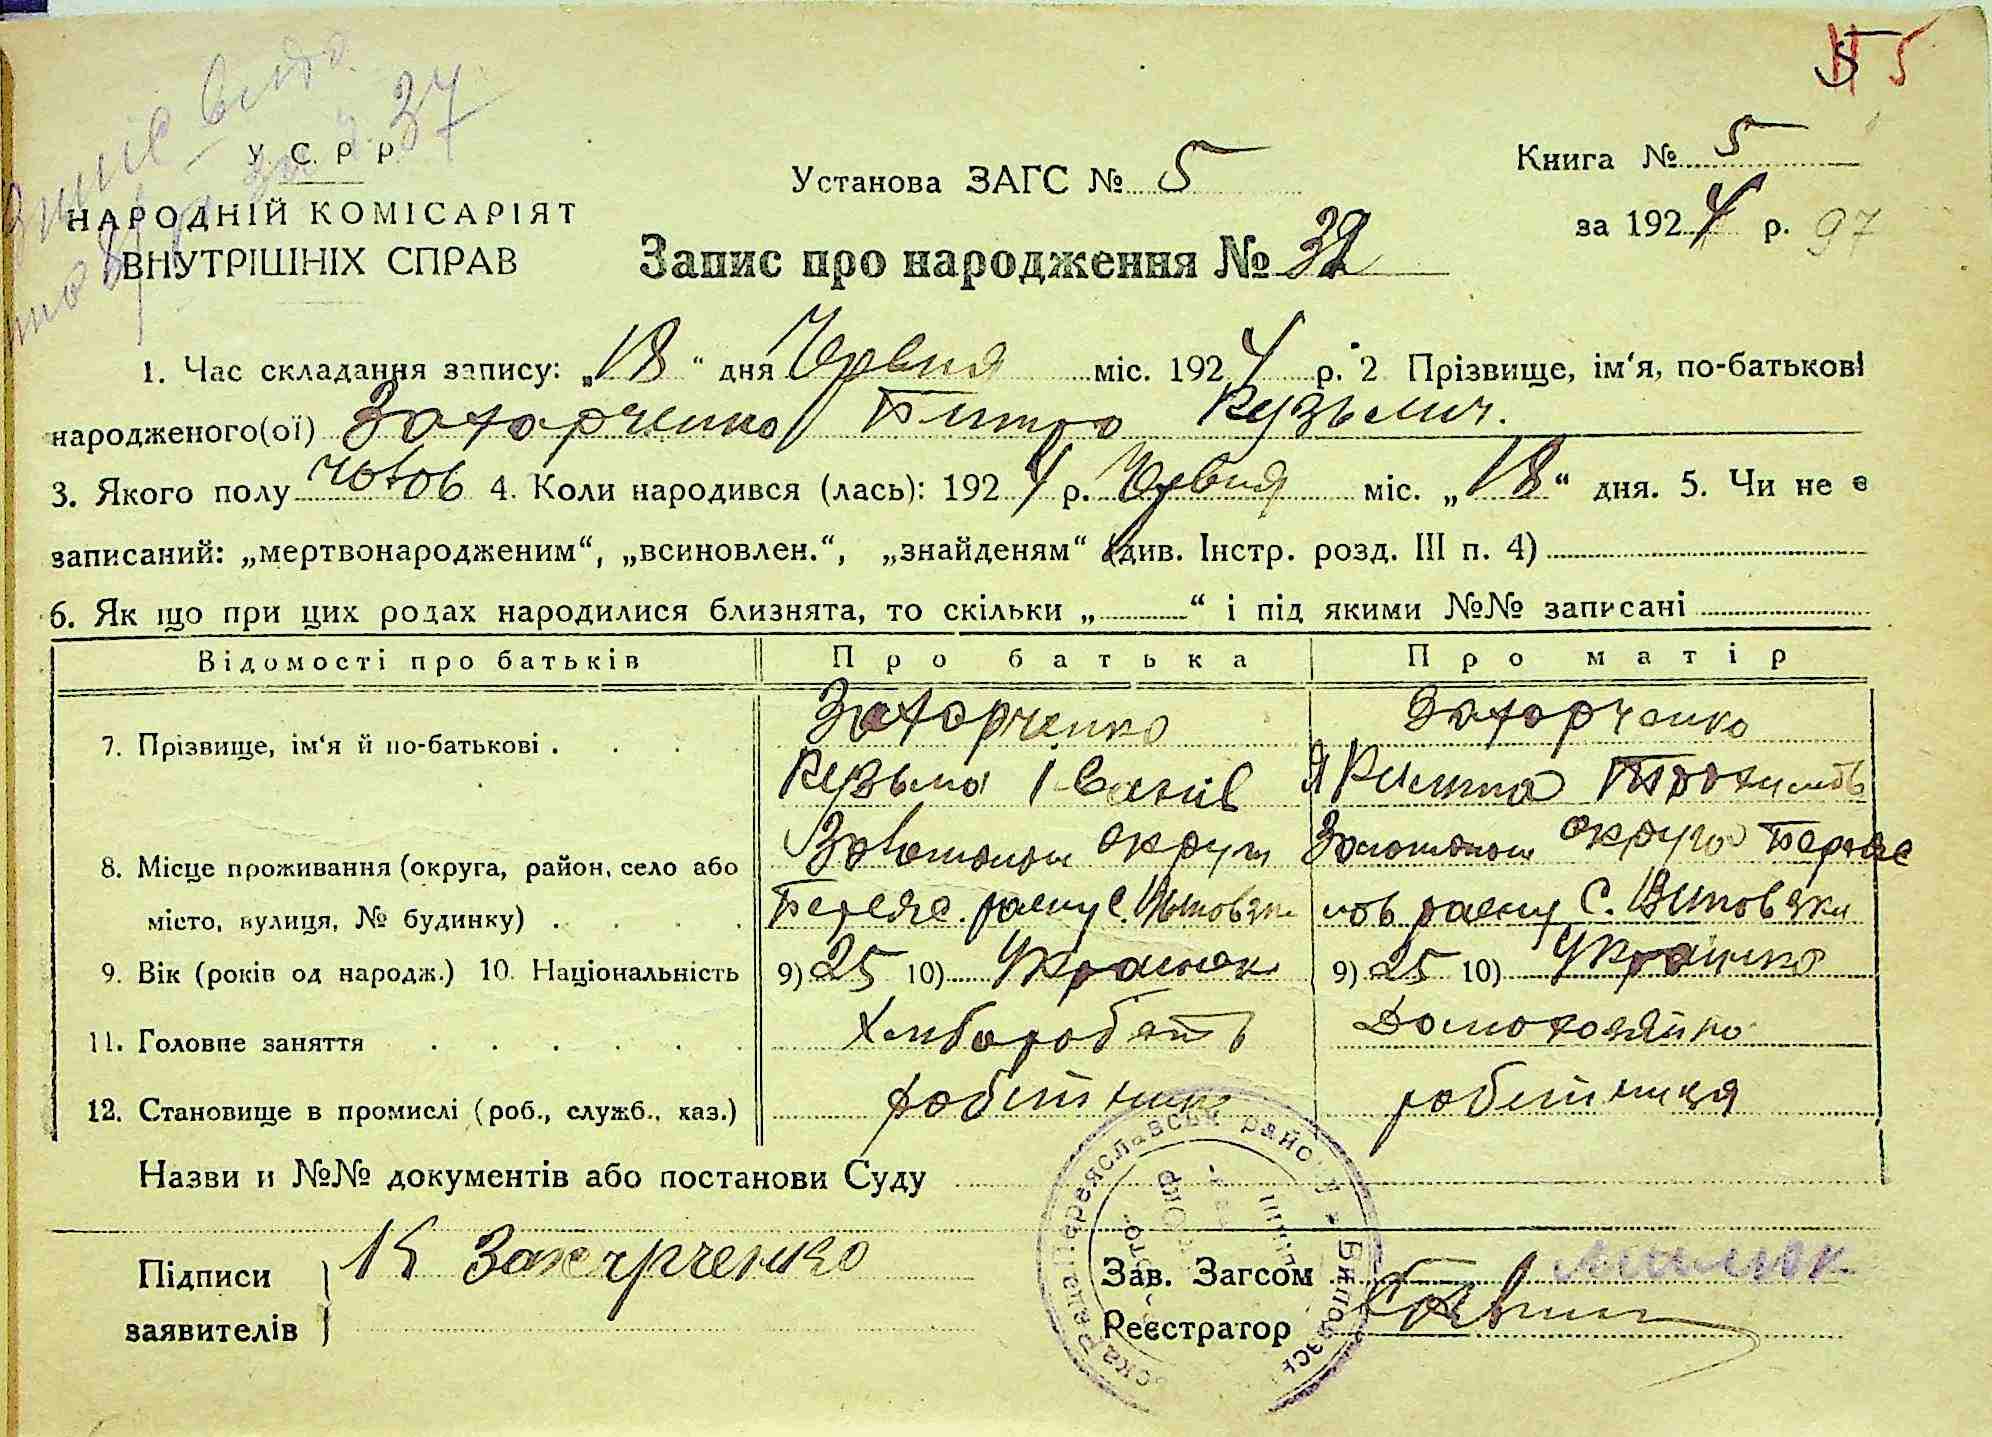 У. С. Р. Р.
НАРОДНІЙ КОМІСАРІЯТ
ВНУТРІШНІХ СПРАВ
Установа ЗАГС № 5
Книга № 5
за 1924 р. 97
Запис про народження № 32
1. Час складання запису: „18“ дня Червня міс. 1924 р. 2 Прізвище, ім‘я, по-батькові
народженого(ої) Захарченко Кузьмич.
3. Якого полу чолов 4. Коли народився (лась): 1924 р. Червня міс. „18“ дня. 5. Чи не є
записаний: „мертвонародженим“, „всиновлен.“, „знайденям“ (див. Інстр. розд. III п. 4)
6. Як що при цих родах народилися близнята, то скільки „ “ і під якими №№ записані
Відомості про батьків Про батька Про матір
7. Прізвище, ім‘я й по-батькові . Захарченко Захарченко
Кузьма Іванів
8. Місце проживання (округа, район, село або округи округа
місто, вулиця, № будинку) . Переяс. раену с. раену с.
9. Вік (років од народж.) 10. Національність 9) 25 10) Українец 9) 25 10) Українка
11. Головне заняття Хлібороб Домохозяйка
12. Становище в промислі (роб., служб., хаз.) робітник робітниця
Назви и №№ документів або постанови Суду
Підписи К Захарченко
заявителів
Зав. Загсом
Реєстратор